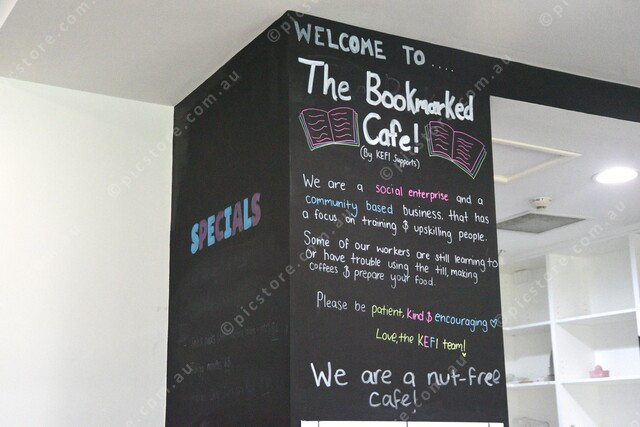 WELCOME TO....
The Bookmarked
Cafe!
(By KEFI Supports)
We are a social enterprise and a
community based business, that has
a focus on training & upskilling people.
Some of our workers are still learning to
Or have trouble using the till, making
coffees & prepare your food.
Please be patient, kind & encouraging ♡
Love, the KEFI team!
We are a nut-free
cafe!
SPECIALS
© picstore.com.au